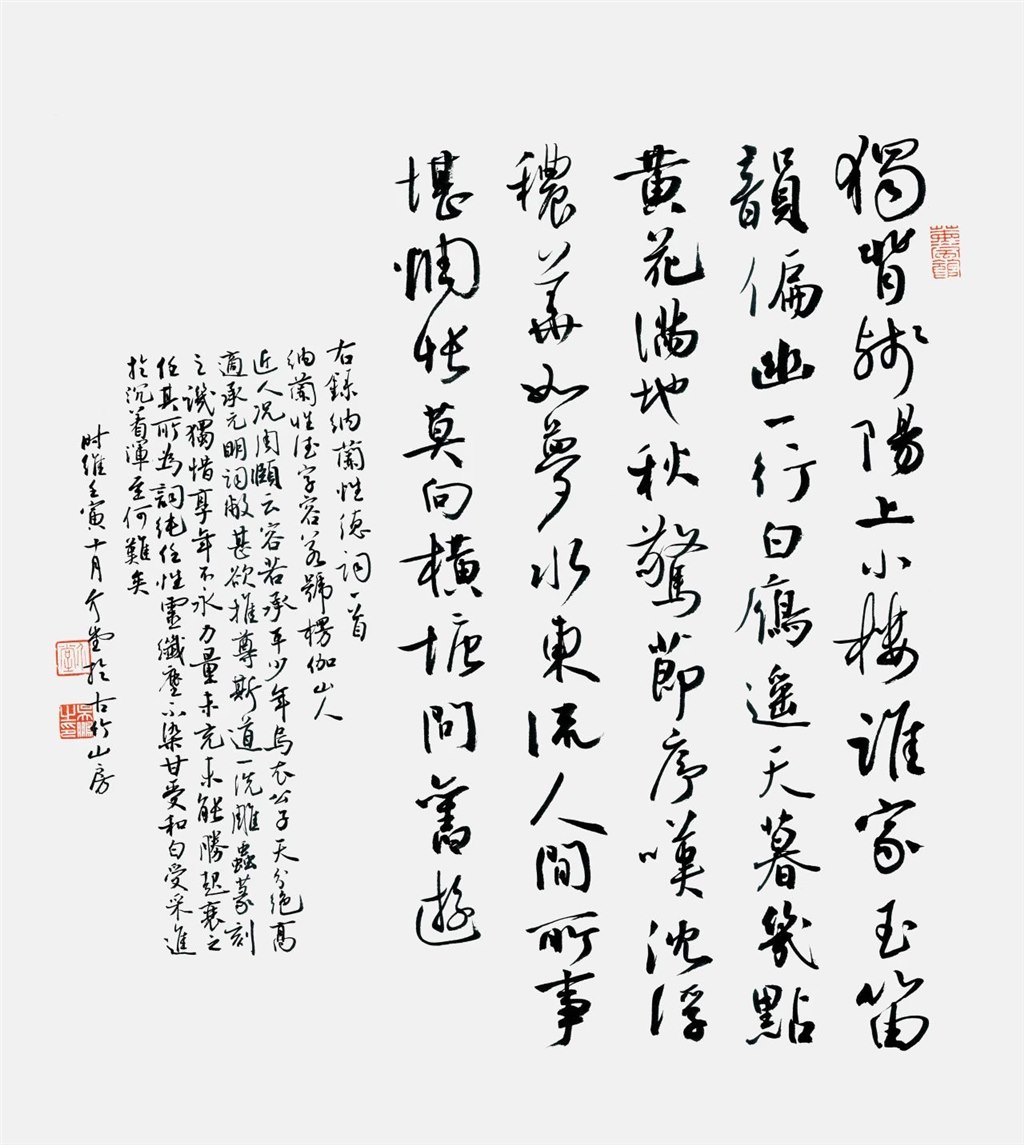 獨背殘陽上小樓誰家玉笛
韻偏幽一行白鴈遙天暮幾點
黄花滿地秋驚節序嘆沈浮
穠華如夢水東流人間所事
堪惆悵莫向橫塘問舊遊
右錄納蘭性德詞一首
納蘭性德字容若號楞伽山人
近人况周頤云容若承平少年烏衣公子天分絕高
適承元明詞敝甚欲推尊斯道一洗雕蟲篆刻
之譏獨惜享年不永力量未充未能勝起衰之
任其所為詞純任性靈纖塵不染甘受和白受采進
於沉着渾至何難矣
时維壬寅十月介堂於古竹山房